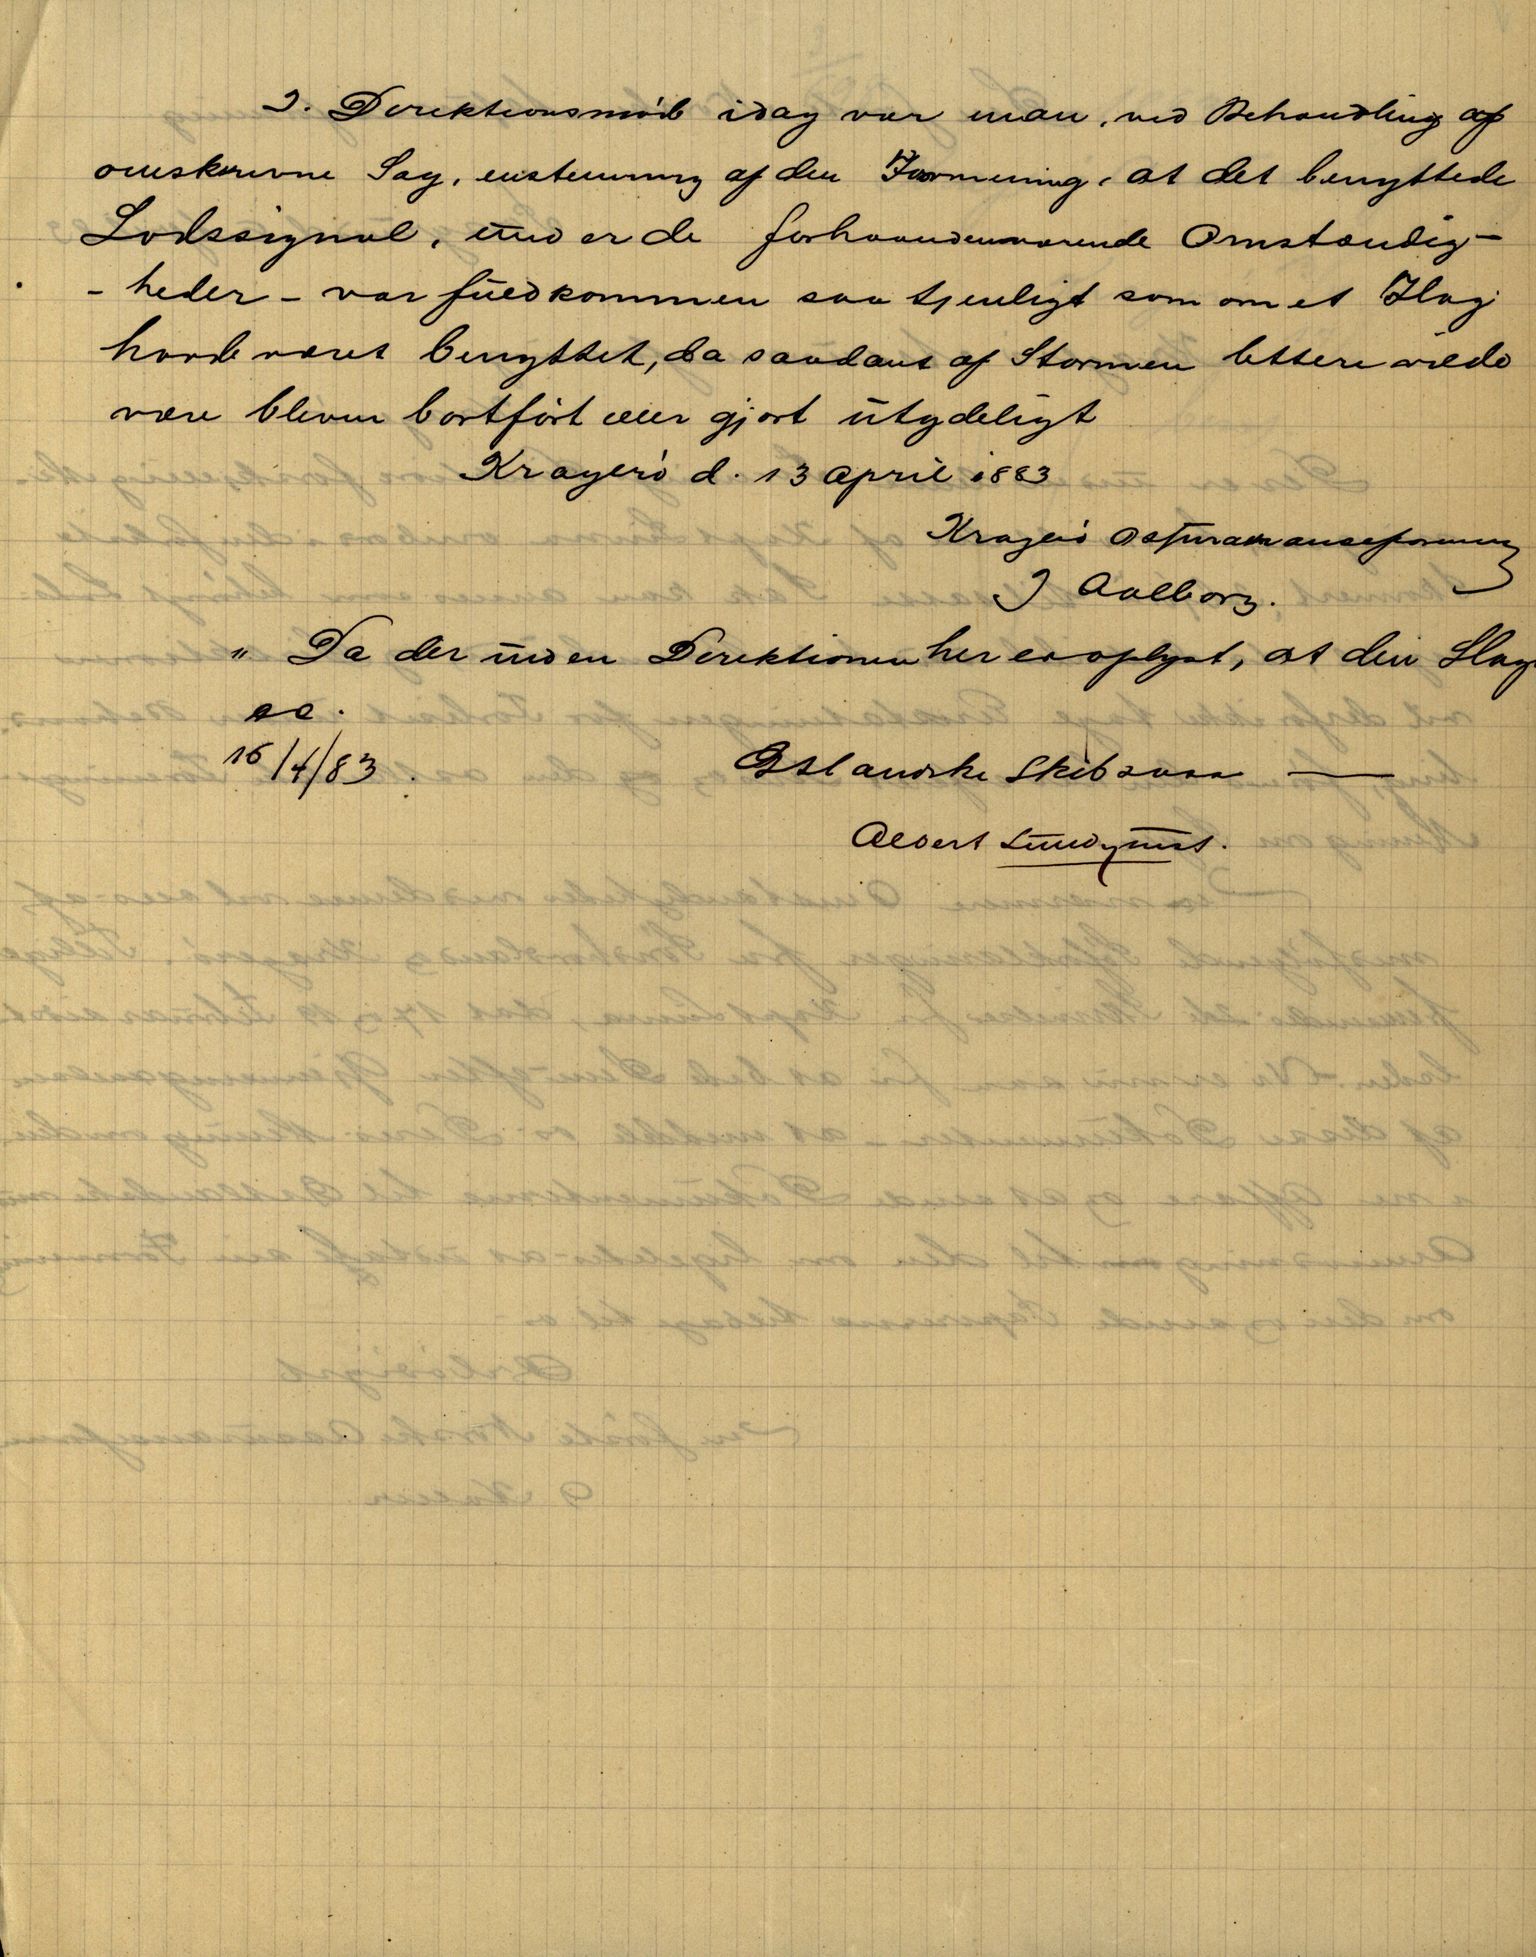 I. Direktionsmöde idag var man, ved Behandling af
omskrevne Sag, enstemmig af den Formening, at det benyttede
Lodssignal, under de forhaandenværende Omstændig-
- heder - var fuldkommen saa tjenligt som om et Flag
havde været benyttet, da saadant af Stormen lettere vilde
være bleven bortfört eller gjort utydeligt
Kragerö d. 13 April 1883
Kragerö Assuranceforening
J Aalborg.
" Da der uden Direktionen her er oplyst, at din
16/4/83.
Østlandske Skibsass
Albert Lundqvist.